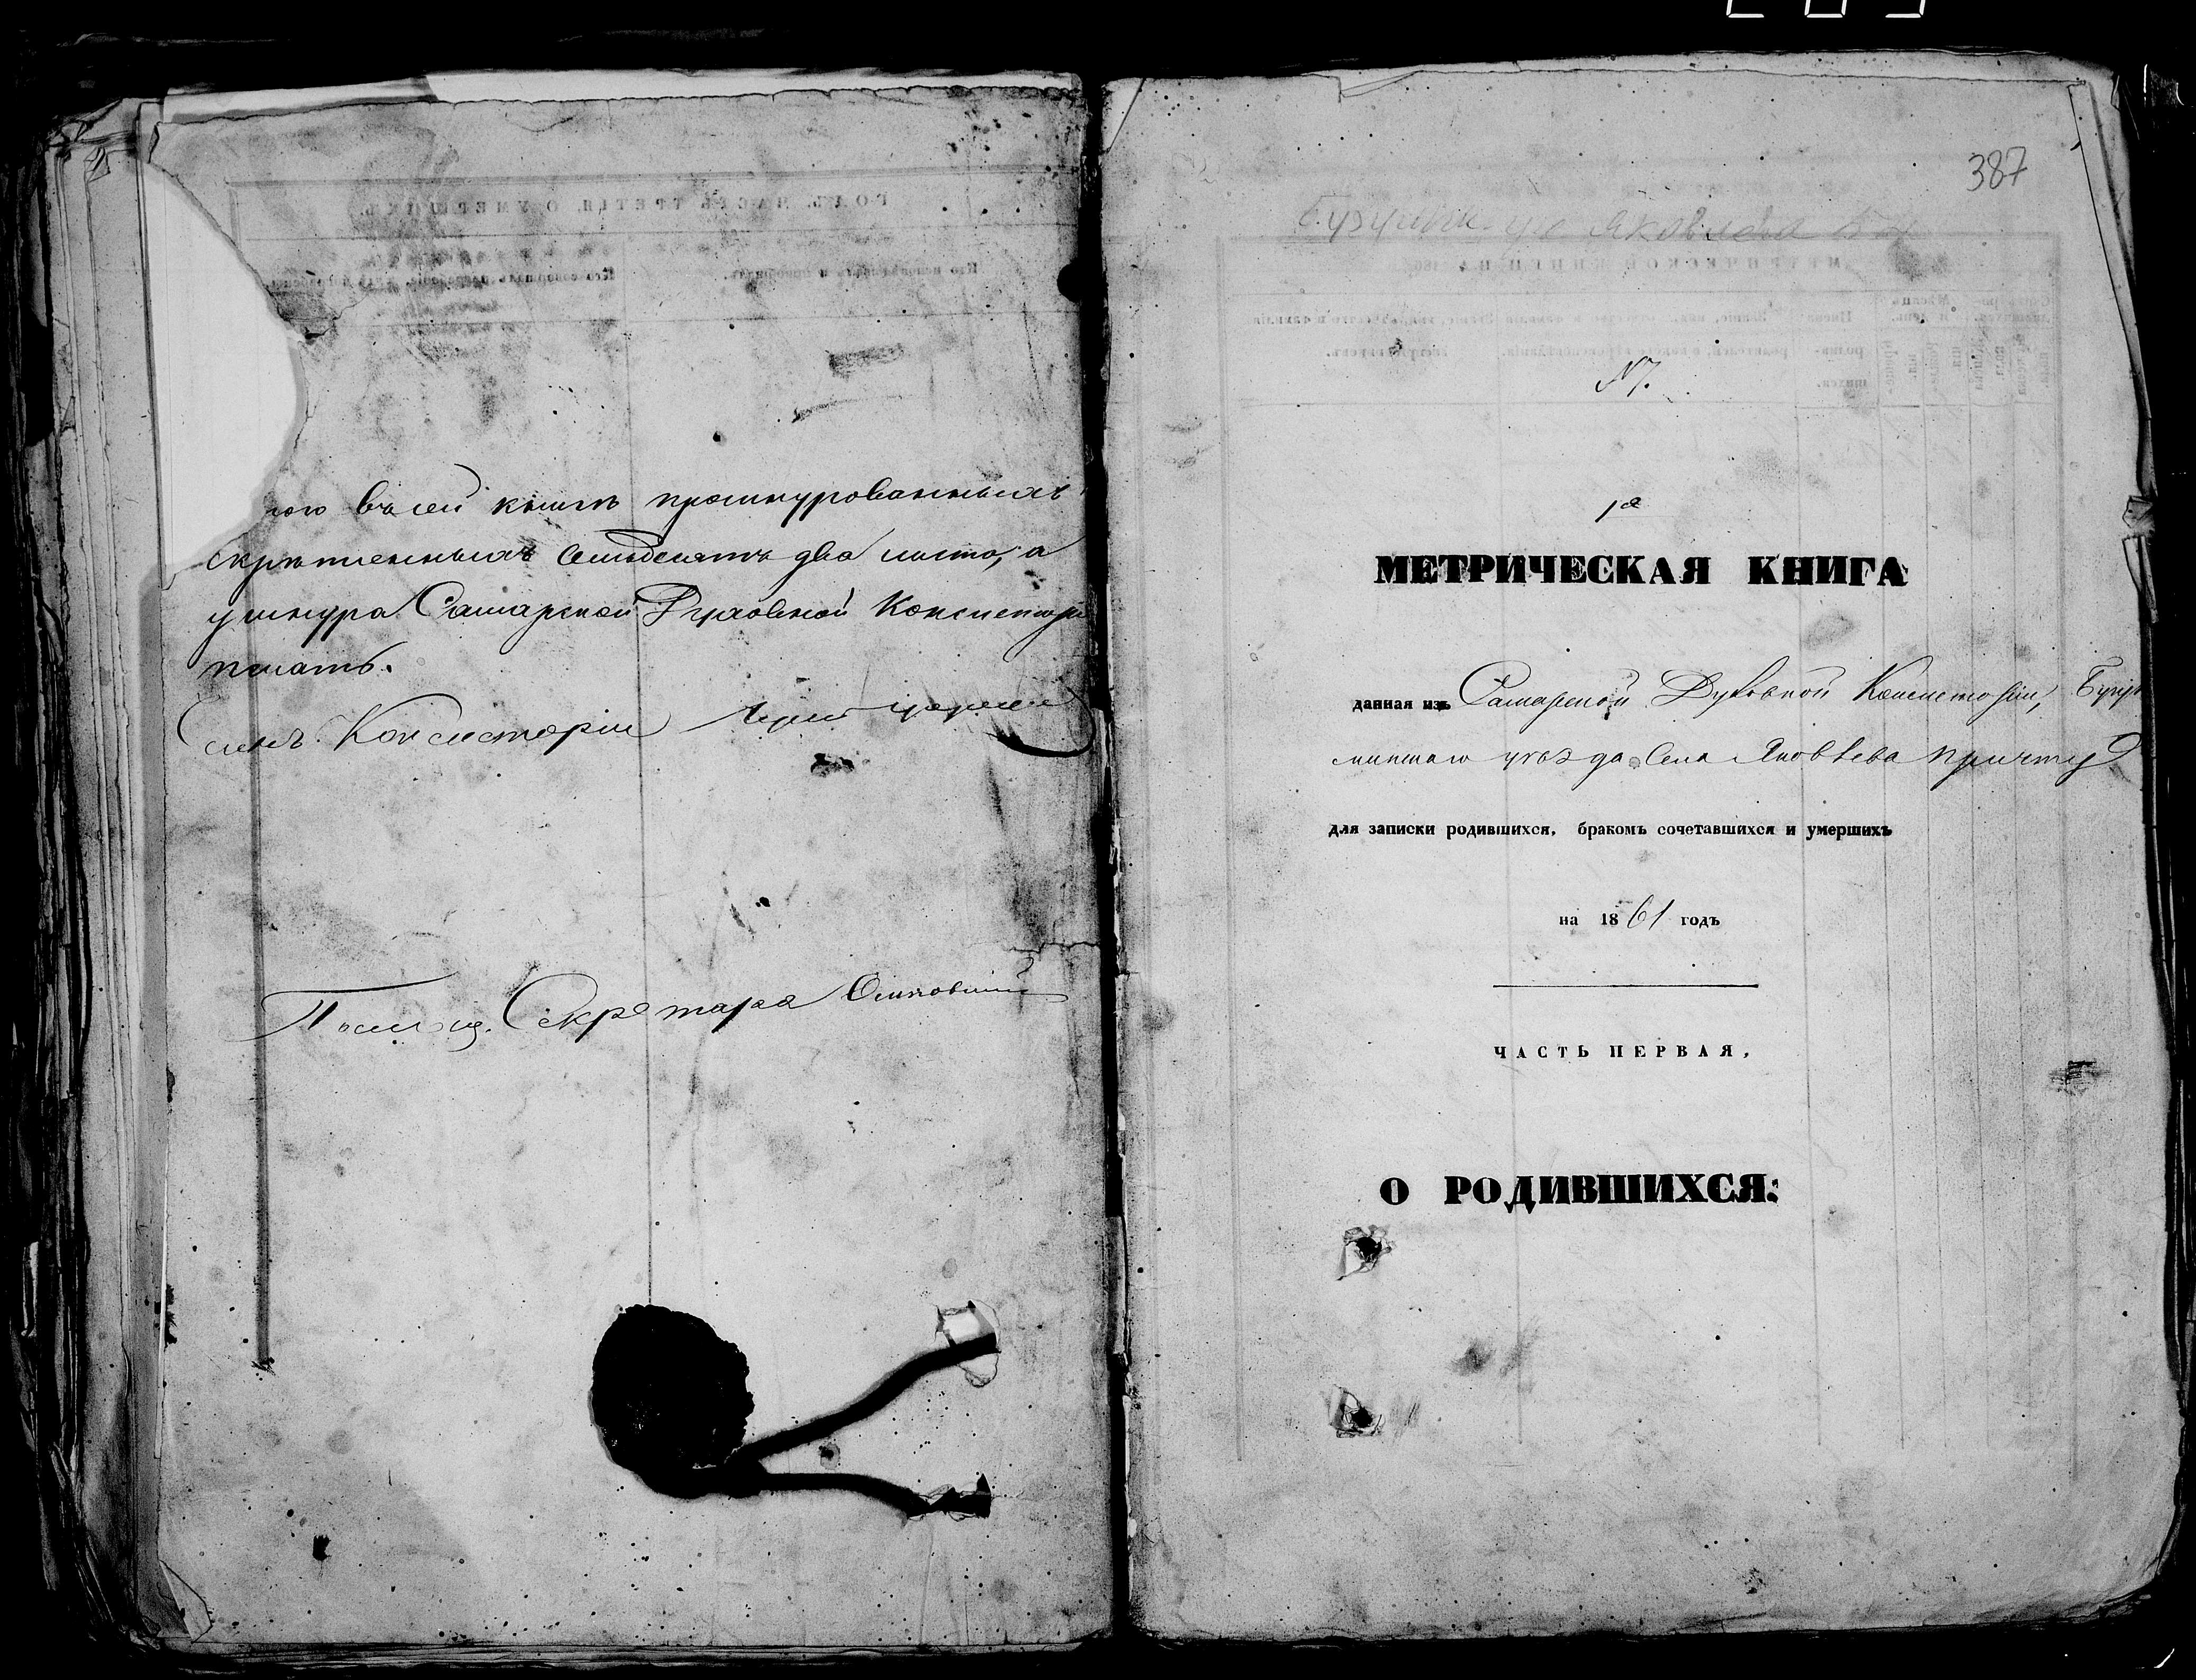 ною въ сей книгѣ прошнурованныхъ
скрѣпленныхъ семьдесятъ два листа, а
у шнура Самарской Духовной Консистор
печать.
Членъ Консисторіи
Помощ. Секретаря
387
Яковлева
№ 7.
1я
МЕТРИЧЕСКАЯ КНИГА
данная изъ Самарской Духовной Консисторіи, Бугур
минскаго уѣзда Села Яковлева причту
для записки родившихся, бракомъ сочетавшихся и умершихъ
на 1861 годъ
ЧАСТЬ ПЕРВАЯ,
О РОДИВШИХСЯ: